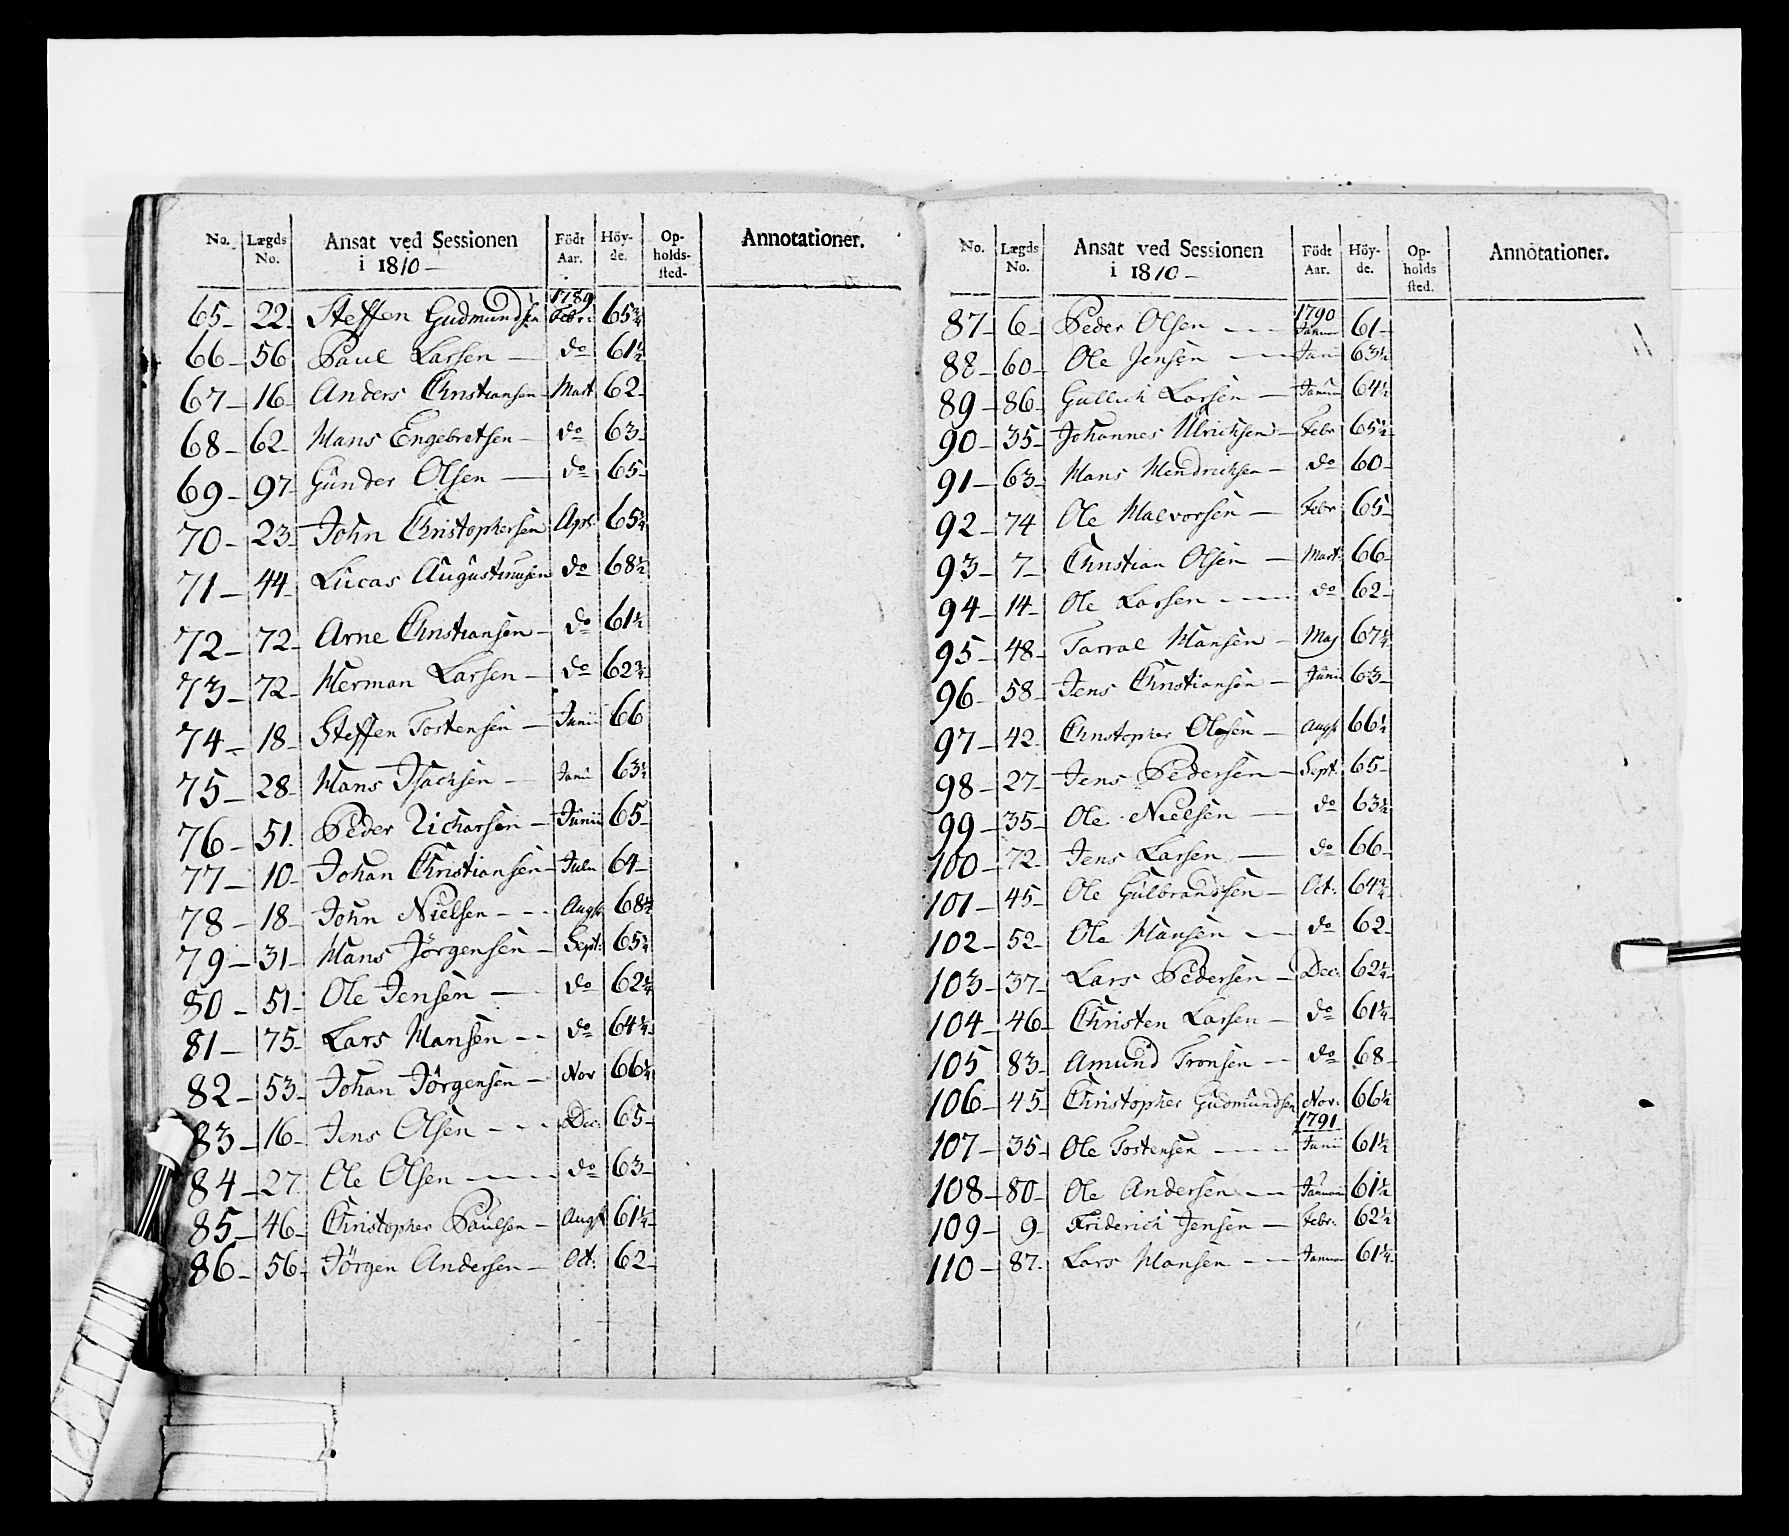 No. Lægds No. Ansat ved Sessionen i 1810 – Födt Aar. Höyde. Opholdssted- Annotationer.
65- 22 Steffen Gudmundsen 1789 Febr: 65¾
66- 56 Paul Larsen – do 61½
67- 16- Anders Christiansen Mart 62-
68- 62- Hans Engebretsen – do 63-
69- 97- Gunder Olsen – do 65-
70- 23- John Christophersen Apr 65¾
71- 44- Lucas Augustinusen do 68½
72- 72- Arne Christiansen – do 61½
73- 72- Herman Larsen – do 62¾
74- 18- Steffen Tostensen – Junii 66
75- 28- Hans Isachsen – Juni 63½
76- 51. Peder Richarsen – Junii 65-
77- 10- Johan Christiansen – 64-
78- 18- John Nielsen - - - Augst 68½
79- 31- Hans Jörgensen – Sept: 65¾
80- 51- Ole Jensen – do 62¼
81- 75- Lars Hansen - - do 64¼
82- 53- Johan Jörgensen – Nov 66¼
83- 16- Jens Olsen - - - Dec: 65-
84- 27. Ole Olsen - - - - do 63-
85- 46- Christopher Paulsen – Augst 61¼
86- 56- Jörgen Andersen – Oct: 62-
No. Lægds No. Ansat ved Sessionen i 1810 – Födt Aar. Höyde. Opholds sted. Annotationer.
87- 6- Peder Olsen - - - 1790 Januar 61-
88- 60- Ole Jensen - - 63½
89- 86- Gullich Larsen – Januar 64½
90- 35- Johannes Ulrichsen – Febr 65½
91- 63- Hans Hendrichsen – do 60-
92- 74 Ole Halvorsen – Febr 65-
93- 7- Christian Olsen – Mart: 66-
94- 14- Ole Larsen - - - - do 62-
95- 48- Tarral Hansen – Maj 67¼
96- 58- Jens Christiansen – Junii 63-
97- 42. Christopher Olesen – Augst 66½
98- 27- Jens Pedersen – Sept. 65-
99- 35- Ole Nielsen – do 63½
100- 72- Jens Larsen – do 66-
101- 45- Ole Gulbrandsen – Oct. 64¾
102- 52- Ole Hansen – do 62-
103- 37- Lars Pedersen – Dec: 62¼
104- 46- Christen Larsen – do 61¼
105 83- Amund Tronsen - - do 68-
106- 45- Christopher Gudmundsen Nov: 66½
107- 35- Ole Tostensen - - - 1791 Junii 61½
108- 80- Ole Andersen - - Januarii 61½
109- 9- Friderich Jensen – Febr. 62½
110- 87- Lars Hansen - - - Januar 61¼